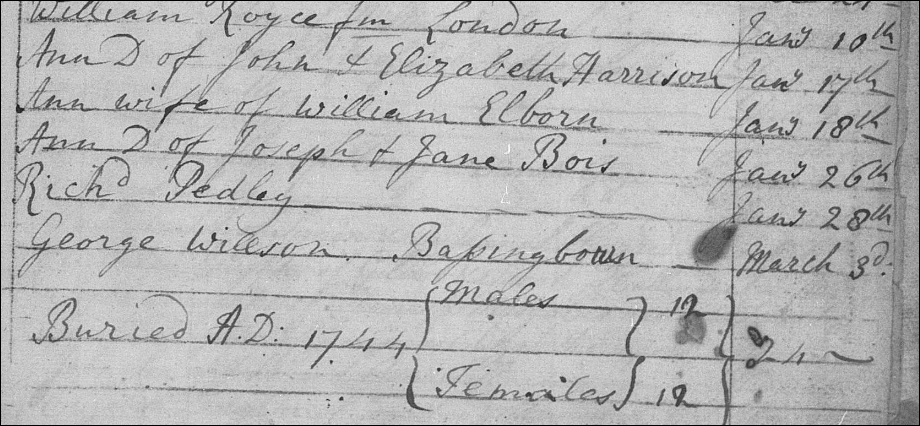 William Royce fm London Janʸ 10th
Ann D of John & Elizabeth Harrison Janʸ 17th
Ann wife of William Elborn Janʸ 18th
Ann D of Joseph & Jane Bois Janʸ 26th
Richᵈ Pedley Janʸ 28th
George Willson. Baſsingbourn March 3ᵈ.
Males 12
Buried A.D: 1744 24
Females 12